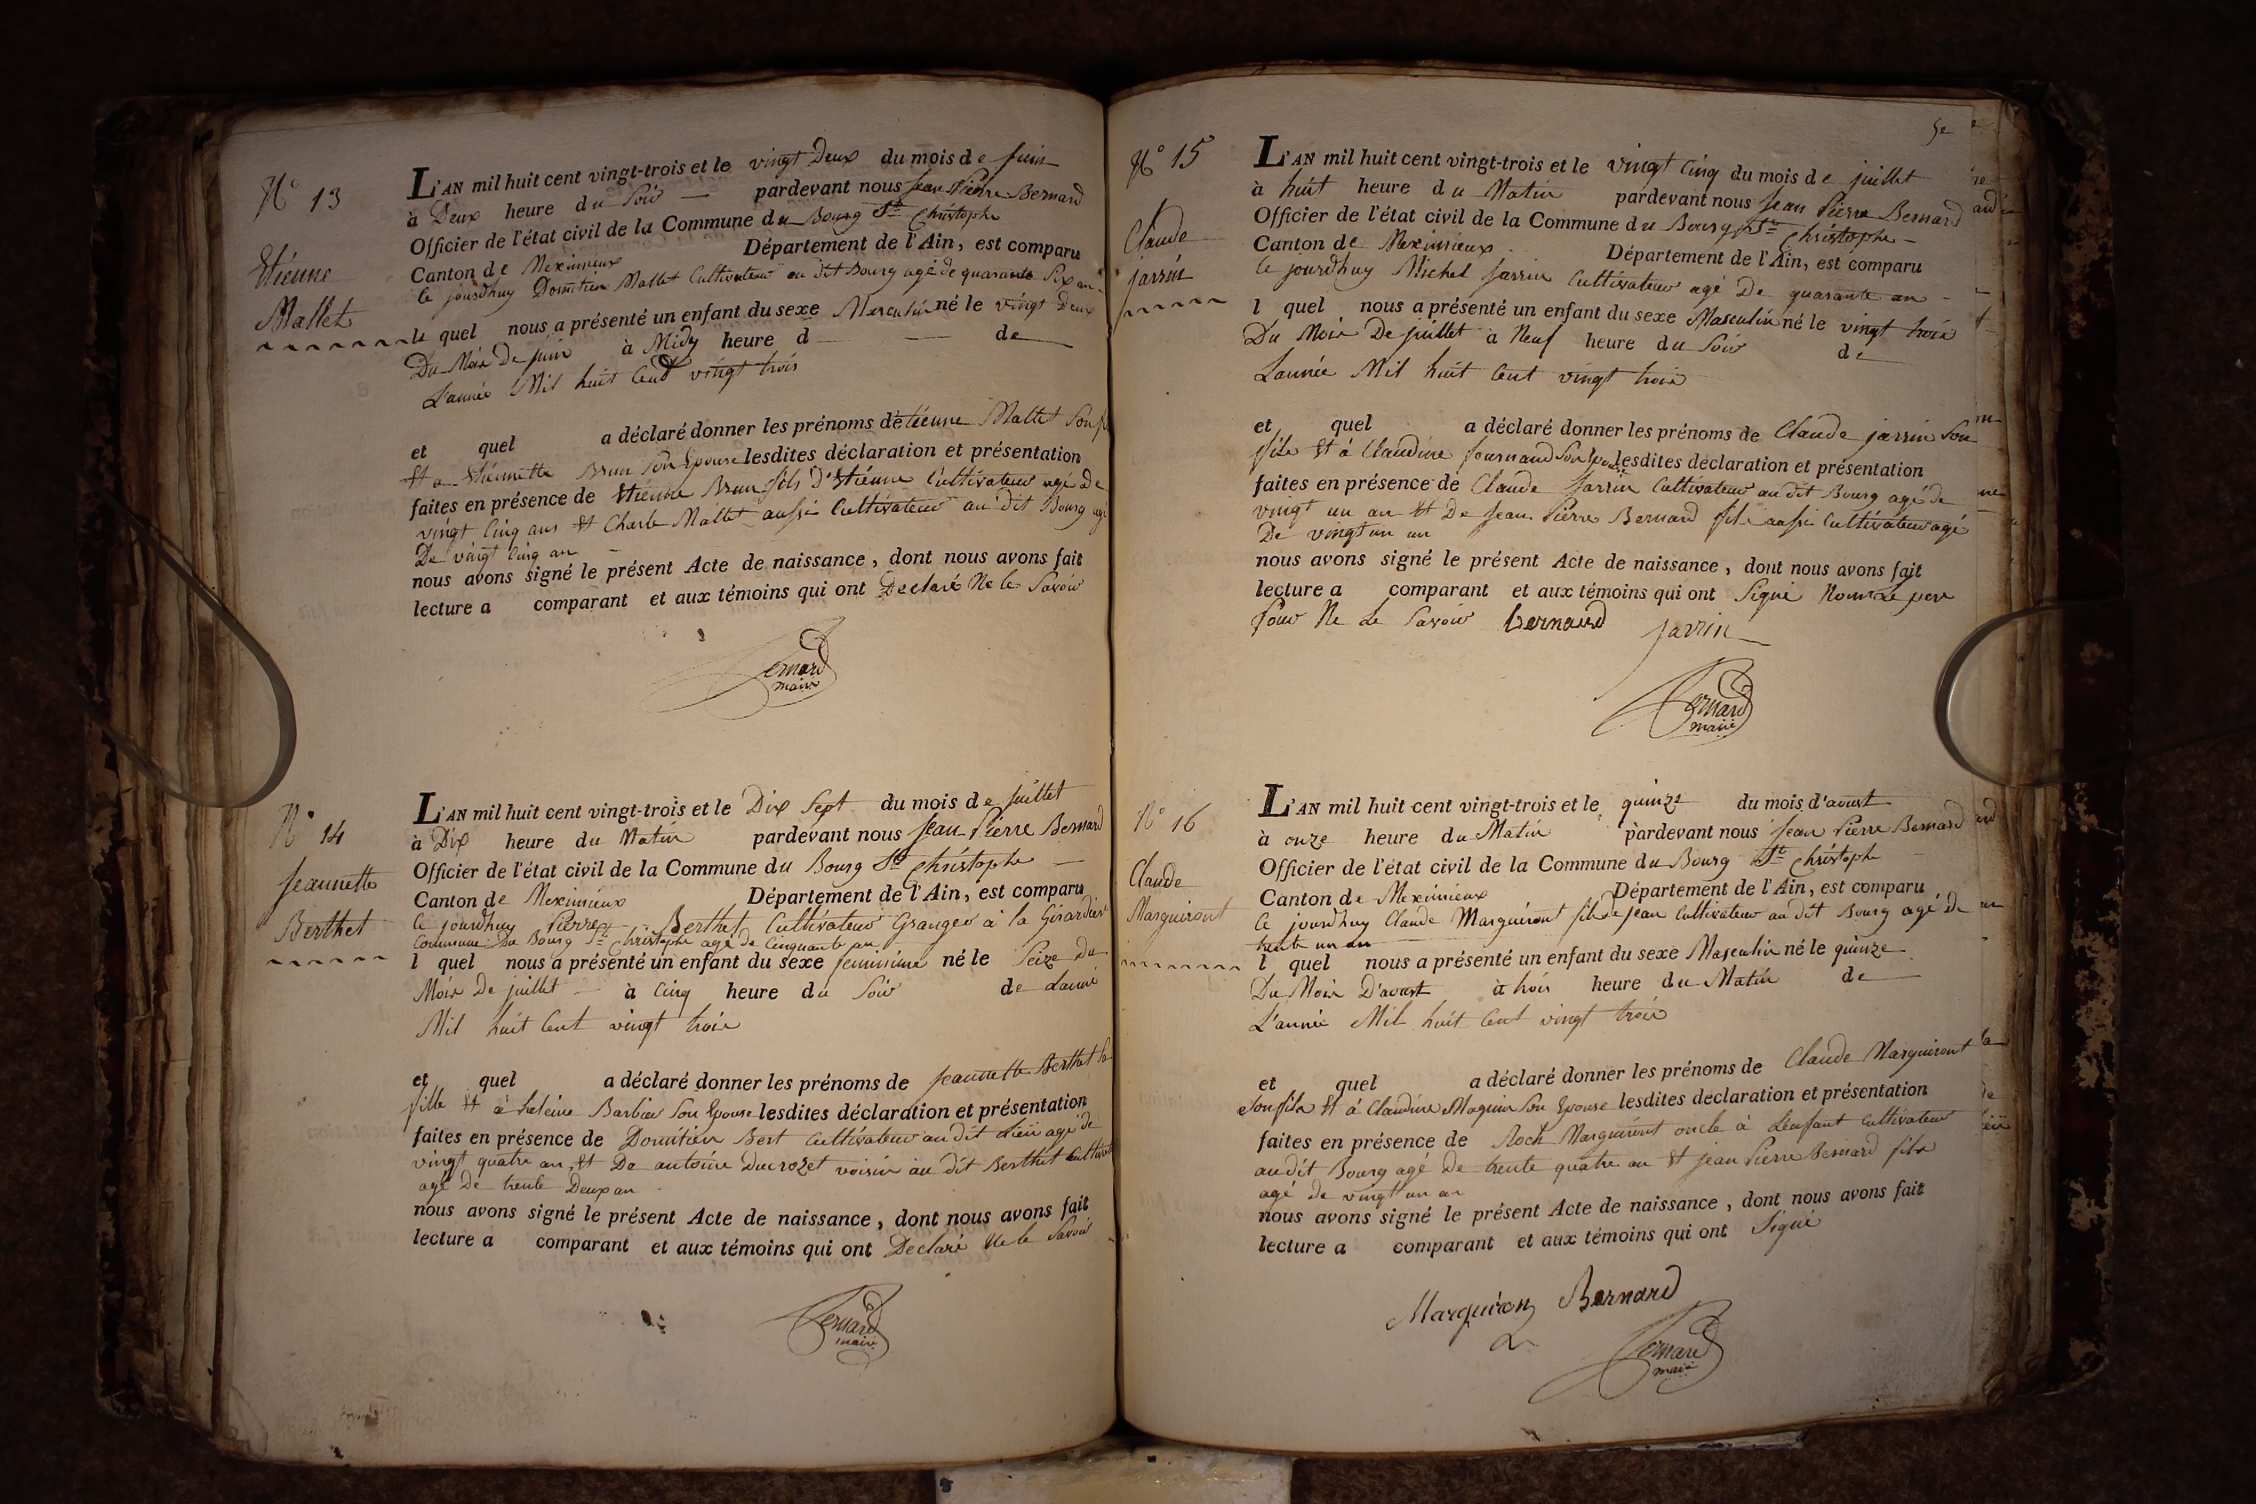 N° 13
Etiénne
Mallet
L'AN mil huit cent vingt-trois et le vingt Deux du mois de Juin
à Deux heure du Soir pardevant nous Jean Piérre Bernard
Officier de l'état civil de la Commune du Bourg St Christophe
Canton de Meximieux Département de l'Ain, est comparu
Ce jourdhuy Domitien Mallet Cultivateur au dit Bourg agé de quarante Six an
le quel nous a présenté un enfant du sexe Masculin né le vingt Deux
Du Mois De Juin à Midy heure d de
L'année Mil huit Cent vingt trois
et quel a déclaré donner les prénoms d'etiénne Mallet Son fils
Et a Etiénnette Brun Son Epouse lesdites déclaration et présentation
faites en présence de Etiénne Brun fils d'Etiénne Cultivateur agé de
vingt Cinq ans Et Charle Mallet aussi Cultivateur au dit Bourg agé
De vingt Cinq an
nous avons signé le présent Acte de naissance, dont nous avons fait
lecture a comparant et aux témoins qui ont Declaré Ne le Savoir
Bernard
maire
N° 14
Jeannette
Berthet
L'AN mil huit cent vingt-trois et le Dix Sept du mois de Juillet
à Dix heure du Matin pardevant nous Jean Piérre Bernard
Officier de l'état civil de la Commune du Bourg St Christophe
Canton de Meximieux Département de l'Ain, est comparu
Ce jourdhuy Pierre Berthet Cultivateur Granger à la Girardiere
Commune Du Bourg St Christophe agé de Cinquante an
l quel nous a présenté un enfant du sexe feminine né le Seize du
Mois De juillet à Cinq heure du Soir de Lannée
Mil huit Cent vingt trois
et quel a déclaré donner les prénoms de Jeannette Berthet Sa
fille Et à heleine Barbier Son Epouse lesdites déclaration et présentation
faites en présence de Domitien Bert Cultivateur au dit Lieu agé de
vingt quatre an Et De antoine Ducrozet voisin au dit Berthet Cultivateur
agé De trente Deux an
nous avons signé le présent Acte de naissance, dont nous avons fait
lecture a comparant et aux témoins qui ont Declaré Ne le Savoir
Bernard
maire
N° 15
Claude
jarrin
L'AN mil huit cent vingt-trois et le vingt Cinq du mois de juillet
à huit heure du Matin pardevant nous Jean Piérre Bernard
Officier de l'état civil de la Commune du Bourg St Christophe
Canton de Meximieux Département de l'Ain, est comparu
Ce jourdhuy Michel Jarrin Cultivateur agé De quarante an
l quel nous a présenté un enfant du sexe Masculin né le vingt trois
Du Mois De juillet à Neuf heure du Soir de
Lannée Mil huit Cent vingt trois
et quel a déclaré donner les prénoms de Claude jarrin Son
fils Et à Claudine fournand Son Epouse lesdites déclaration et présentation
faites en présence de Claude Jarrin Cultivateur au dit Bourg agé de
vingt un an Et De Jean Piérre Bernard fils aussi Cultivateur agé
De vingt un an
nous avons signé le présent Acte de naissance, dont nous avons fait
lecture a comparant et aux témoins qui ont Signé Non Le pere
pour Ne Le Savoir bernard jarrin
Bernard
maire
N° 16
Claude
Marguiront
L'AN mil huit cent vingt-trois et le quinze du mois d'aoust
à onze heure du Matin pardevant nous Jean Pierre Bernard
Officier de l'état civil de la Commune du Bourg St Christophe
Canton de Meximieux Département de l'Ain, est comparu
Ce jourdhuy Claude Marguiront fils de Jean Cultivateur au dit Bourg agé de
trente un an
l quel nous a présenté un enfant du sexe Masculin né le quinze
Du Mois D'aoust à trois heure du Matin de
L'année Mil huit Cent vingt trois
et quel a déclaré donner les prénoms de Claude Marguiront
Son fils Et à Claudine Maguin Son Epouse lesdites déclaration et présentation
faites en présence de Roch Marguiront oncle à Lenfant Cultivateur
au dit Bourg agé De trente quatre an Et jean Pierre Bernard fils
agé de vingt un an
nous avons signé le présent Acte de naissance, dont nous avons fait
lecture a comparant et aux témoins qui ont Signé
Marguiron Bernard
Bernard
maire